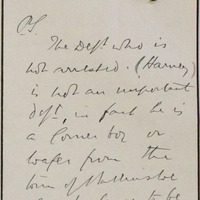 P.S.
The Deft. who is
not arrested. (Harney)
is not an important
deft, in fact he is
a Corner boy or
loafer from the
town of